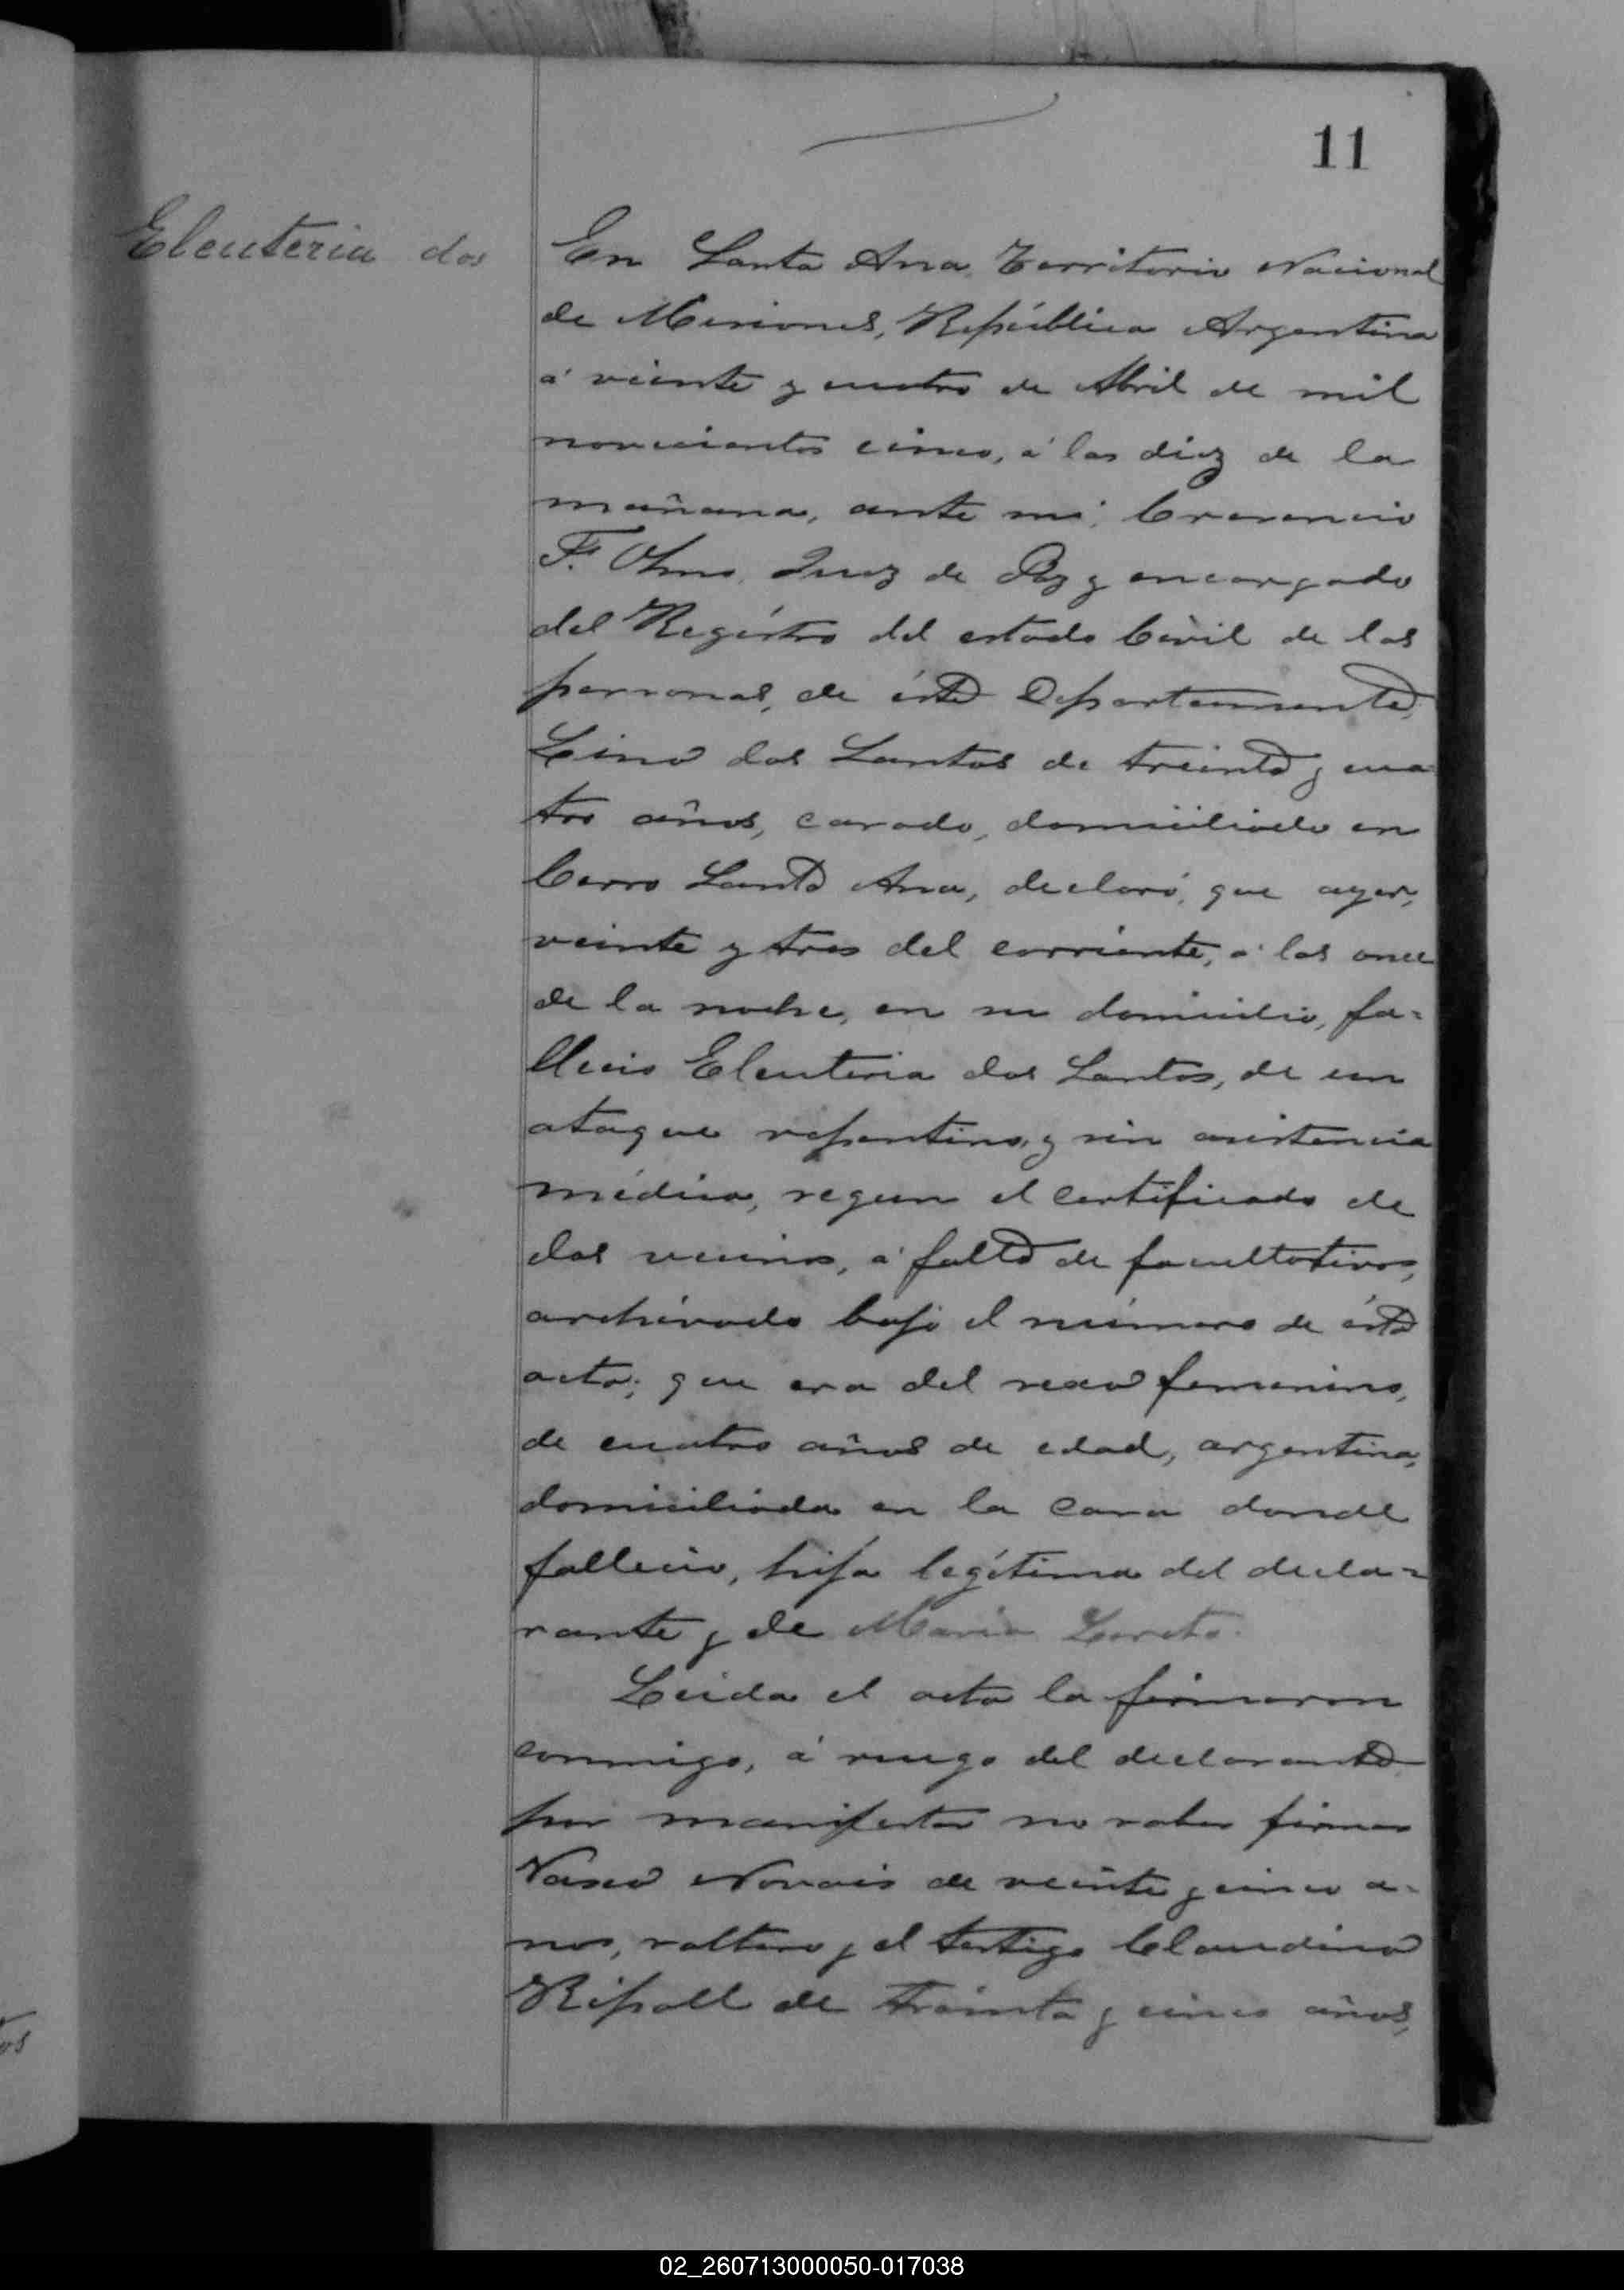 11
Eleuteria dos
En Santa Ana, Territorio Nacional
de Misiones, República Argentina
á veinte y cuatro de Abril de mil
novecientos cinco, á las diez de la
mañana, ante mi, Cresencio
F. Olmo, Juez de Paz y encargado
del Registro del estado Civil de las
personas, de éste Departamento,
Lino dos Santos de treinta y cua
tro años, casado, domiciliado en
Cerro Santa Ana, declaró, que ayer,
veinte y tres del corriente, á las once
de la noche, en su domicilio, fa=
llecio Eleuteria dos Santos, de un
ataque repentino, y sin asistencia
médica, segun el certificado de
dos vecinos, á falta de facultativos,
archivado bajo el número de ésta
acta; que era del sexo femenino,
de cuatro años de edad, argentina,
domiciliada en la casa donde
fallecio, hija legítima del decla=
rante y de Maria Loreto.
Leida el acta la firmaron
conmigo, á ruego del declarante
por manifestar no saber firmar
Vasco Novais de veinte y cinco a-
ños, soltero y el testigo Claudino
Ripoll de treinta y cinco años,
02_260713000050-017038